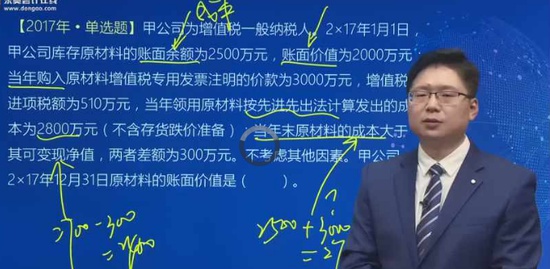 www.dongao.com
【2017年·单选题】甲公司为增值税一般纳税人。2×17年1月1日,
甲公司库存原材料的账面余额为2500万元,账面价值为2000万元,
当年购入原材料增值税专用发票注明的价款为3000万元,增值税
进项税额为510万元,当年领用原材料按先进先出法计算发出的成
本为2800万元(不含存货跌价准备),当年末原材料的成本大于
其可变现净值,两者差额为300万元。不考虑其他因素。甲公司
2×17年12月31日原材料的账面价值是( )。
2500+3000
-300